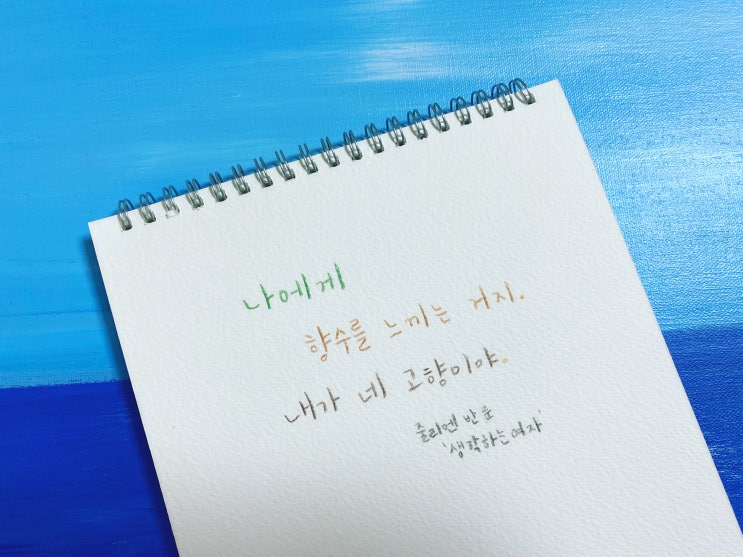 나에게
향수를 느끼는 거지.
내가 네 고향이야.
줄리엔 반 룬
'생각하는 여자'